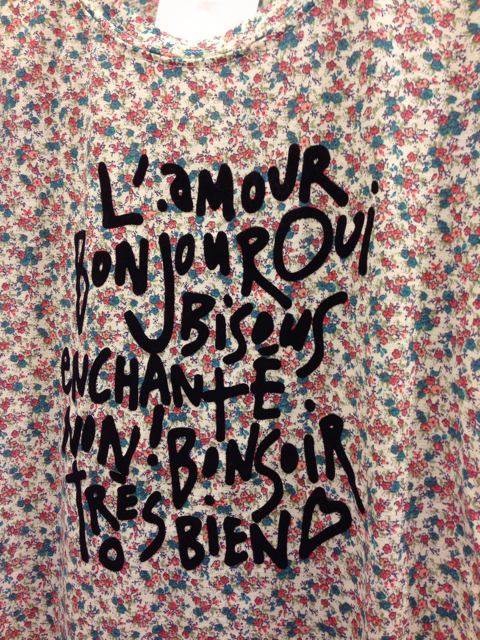 L'aMOUR
BONJOUR OUI
BisOUS
eNCHANTÉ
NON! BONSOiR
TRÈS BiEN